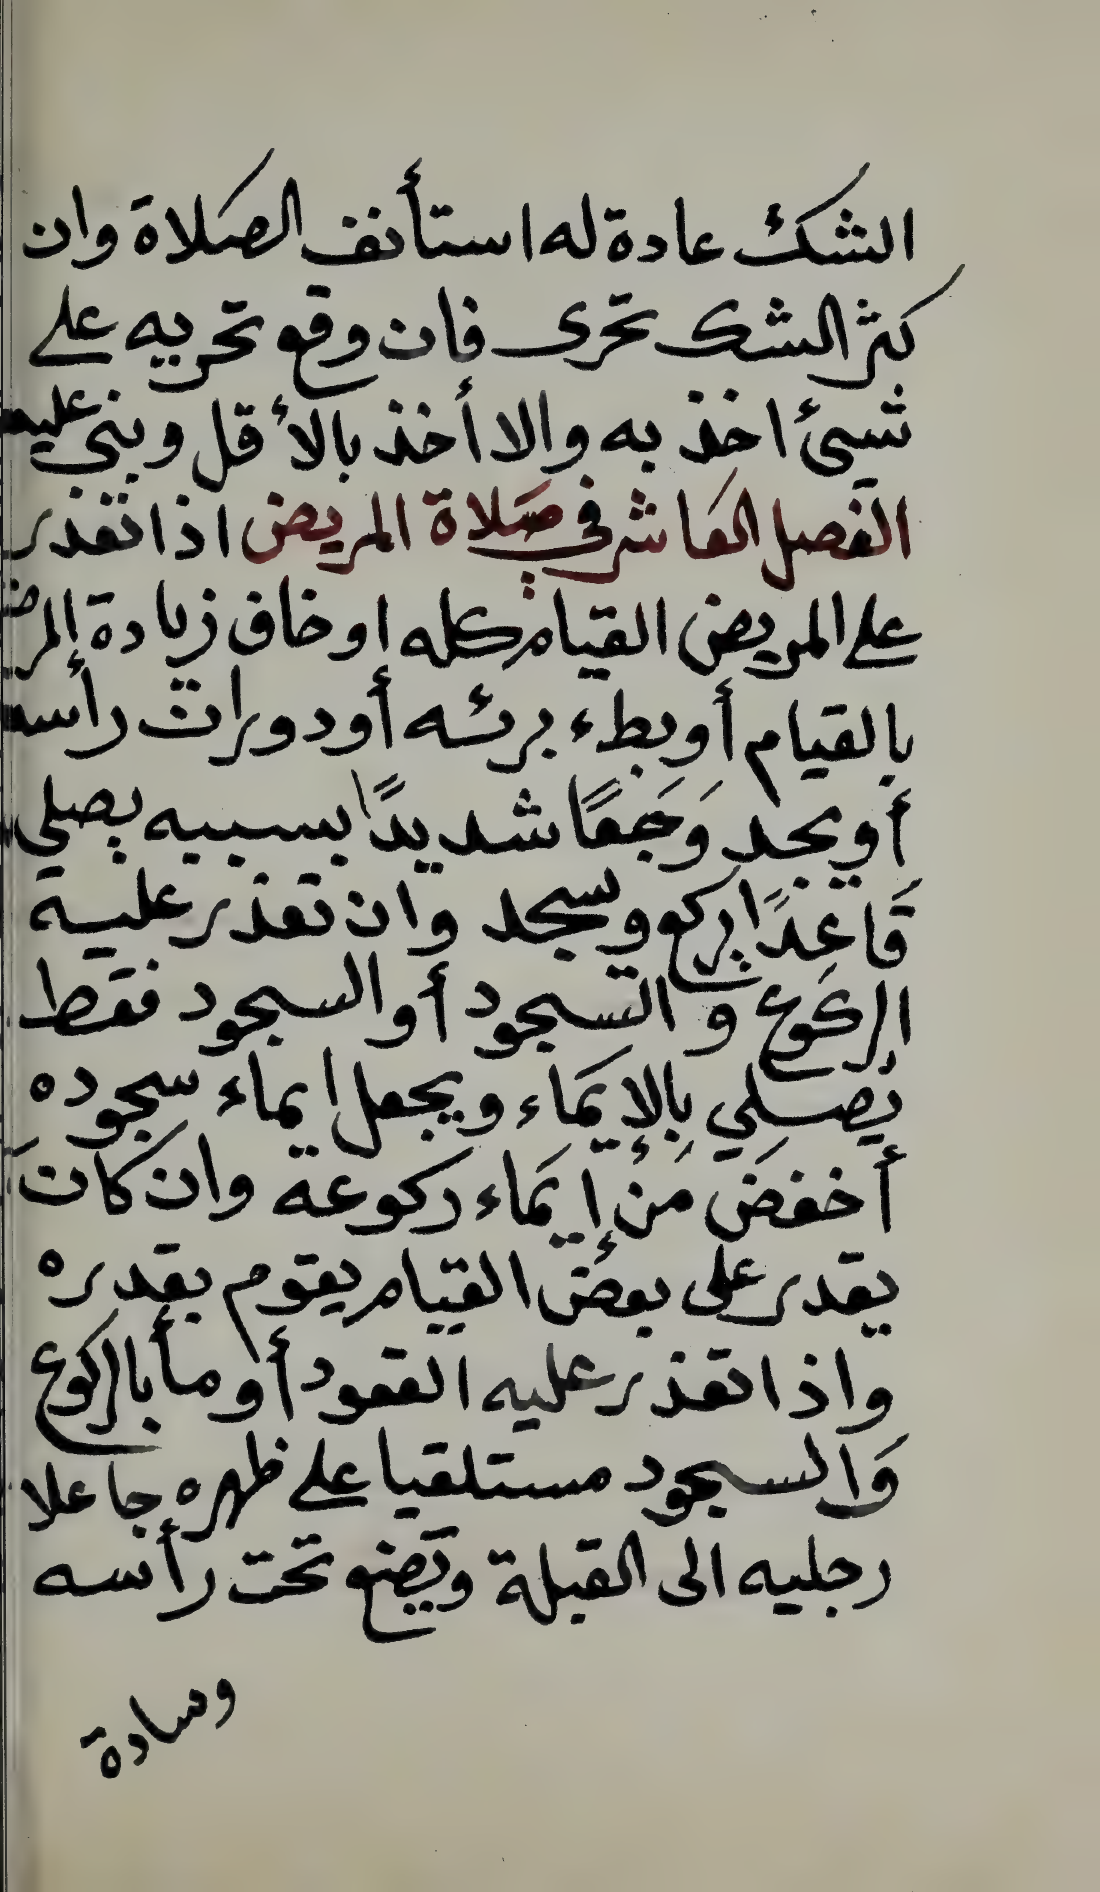 الشك عادة له استأنف الصلاة وان
كثر الشك تحرى فان وقع تحريه على
شيئ اخذ به والا أخذ بالأقل وبنى عليه
الفصل العاشر في صلاة المريض اذا تعذر
على المريض القيام كله او خاف زيادة المرض
بالقيام أو بطء برئه أو دوران رأسه
أو يجد وَجَعًا شديدًا بسببه يصلي
قَاعِدًا يركع ويسجد وان تعذر عليه
الركوع والسجود أو السجود فقط
يصلي بالإيمَاء ويجعل ايماء سجوده
أخفضَ مَن إيمَاء ركوعه وان كان
يقدر على بعض القيام يقوم بقدره
واذا تعذر عليه القعود أومأ بالركوع
وَالسجود مستلقيا على ظهره جاعلا
رجليه الى القبلة ويضع تحت رأسه
وسادة